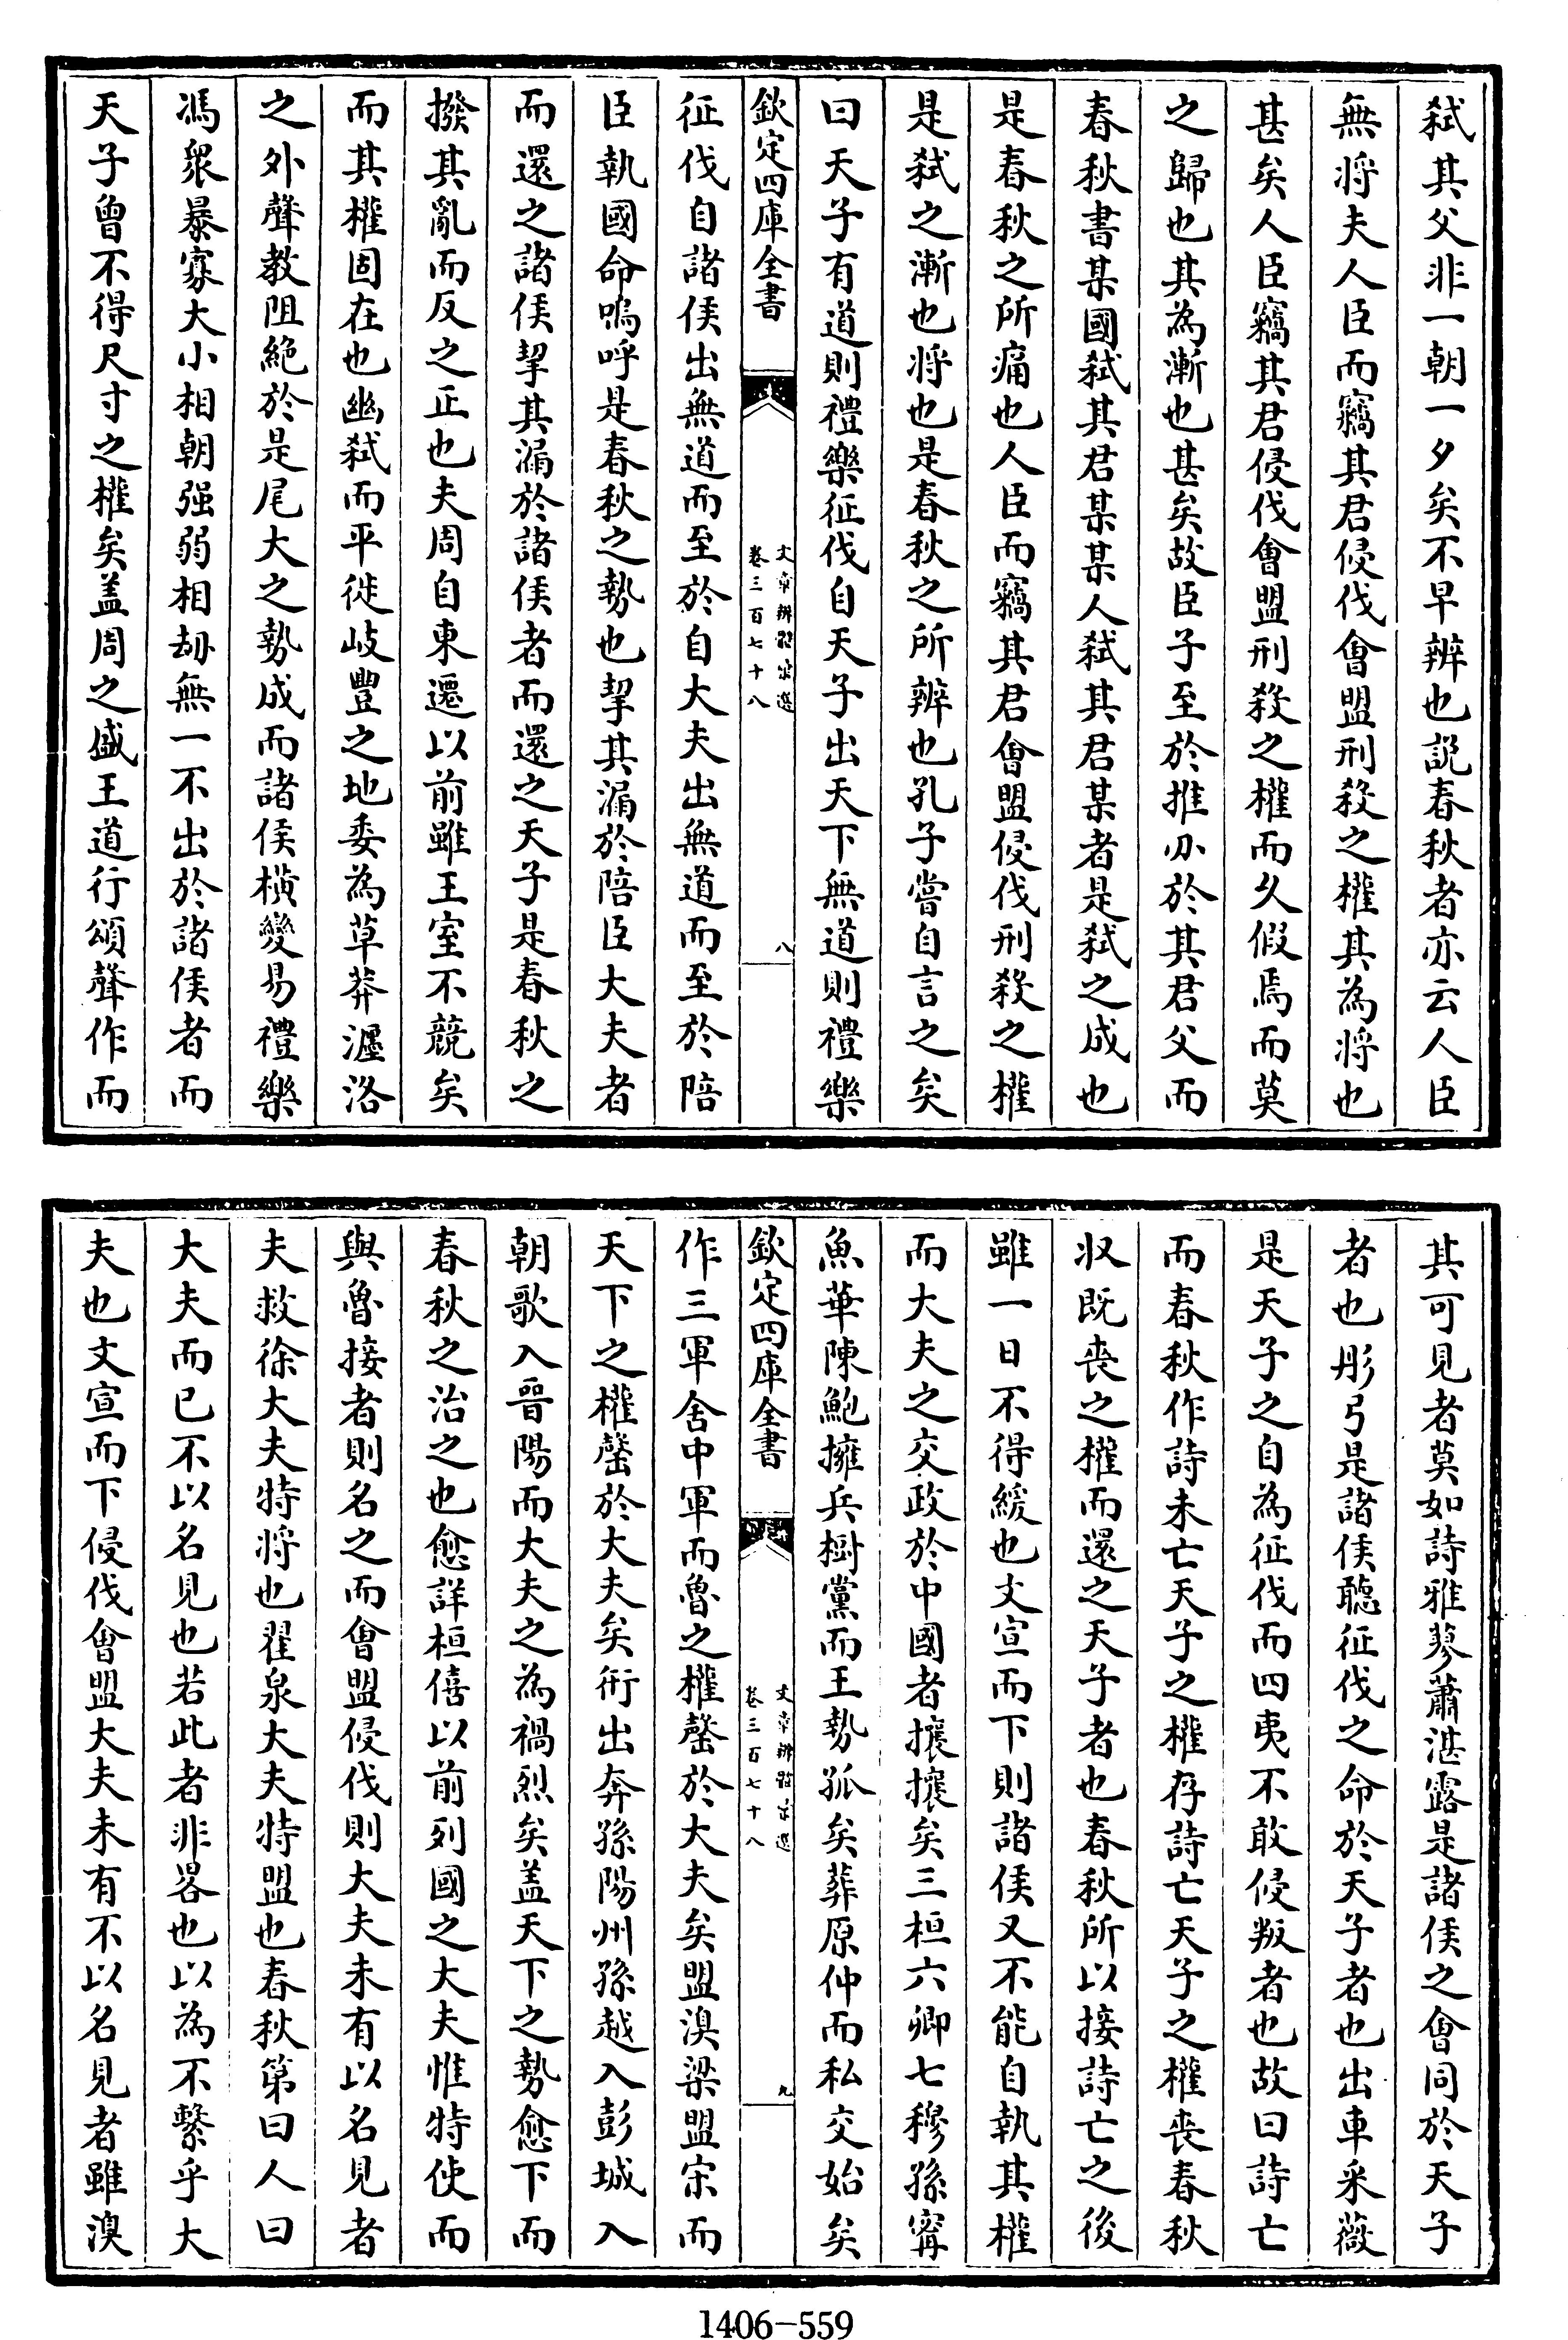 弑其父非一朝一夕矣不早辨也説春秋者亦云人臣
無将夫人臣而竊其君侵伐會盟刑殺之權其為将也
甚矣人臣竊其君侵伐會盟刑殺之權而久假焉而莫
之歸也其為漸也甚矣故臣子至於推刃於其君父而
春秋書某國弑其君某某人弑其君某者是弑之成也
是春秋之所痛也人臣而竊其君會盟侵伐刑殺之權
是弑之漸也将也是春秋之所辨也孔子嘗自言之矣
曰天子有道則禮樂征伐自天子出天下無道則禮樂
欽定四庫全書
文章辨體彙選
卷三百七十八
八
征伐自諸侯出無道而至於自大夫出無道而至於陪
臣執國命嗚呼是春秋之勢也挈其漏於陪臣大夫者
而還之諸侯挈其漏於諸侯者而還之天子是春秋之
撥其亂而反之正也夫周自東遷以前雖王室不競矣
而其權固在也幽弑而平徙岐豐之地委為草莽瀍洛
之外聲教阻絶於是尾大之勢成而諸侯橫變易禮樂
馮衆暴寡大小相朝强弱相刼無一不出於諸侯者而
天子曾不得尺寸之權矣盖周之盛王道行頌聲作而
其可見者莫如詩雅蓼蕭湛露是諸侯之會同於天子
者也彤弓是諸侯聽征伐之命於天子者也出車采薇
是天子之自為征伐而四夷不敢侵叛者也故曰詩亡
而春秋作詩未亡天子之權存詩亡天子之權喪春秋
収既喪之權而還之天子者也春秋所以接詩亡之後
雖一日不得緩也文宣而下則諸侯又不能自執其權
而大夫之交政於中國者攘攘矣三桓六卿七穆孫甯
魚華陳鮑擁兵樹黨而王勢孤矣葬原仲而私交始矣
欽定四庫全書
文章辨體彙選
卷三百七十八
九
作三軍舍中軍而魯之權罄於大夫矣盟溴梁盟宋而
天下之權罄於大夫矣衎出奔孫陽州孫越入彭城入
朝歌入晉陽而大夫之為禍烈矣盖天下之勢愈下而
春秋之治之也愈詳桓僖以前列國之大夫惟特使而
與魯接者則名之而會盟侵伐則大夫未有以名見者
夫救徐大夫特将也翟泉大夫特盟也春秋第曰人曰
大夫而已不以名見也若此者非畧也以為不繫乎大
夫也文宣而下侵伐會盟大夫未有不以名見者雖溴
1406-559